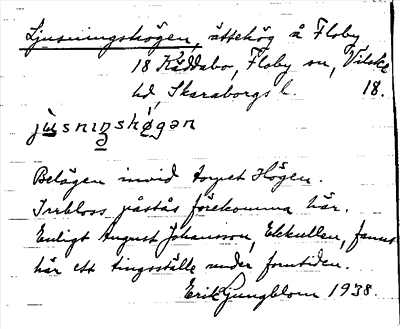 Ljusningshögen, ättehög å Floby
18 Käddabo, Floby sn, Vilske
hd, Skaraborgs l. 18.
jùsniŋshö́gən
Belägen invid torpet Högen.
Irrbloss påstås förekomma här.
Enligt August Johansson, Ekkullen, fanns
här ett tingsställe under forntiden.
Erik Ljungblom 1938.